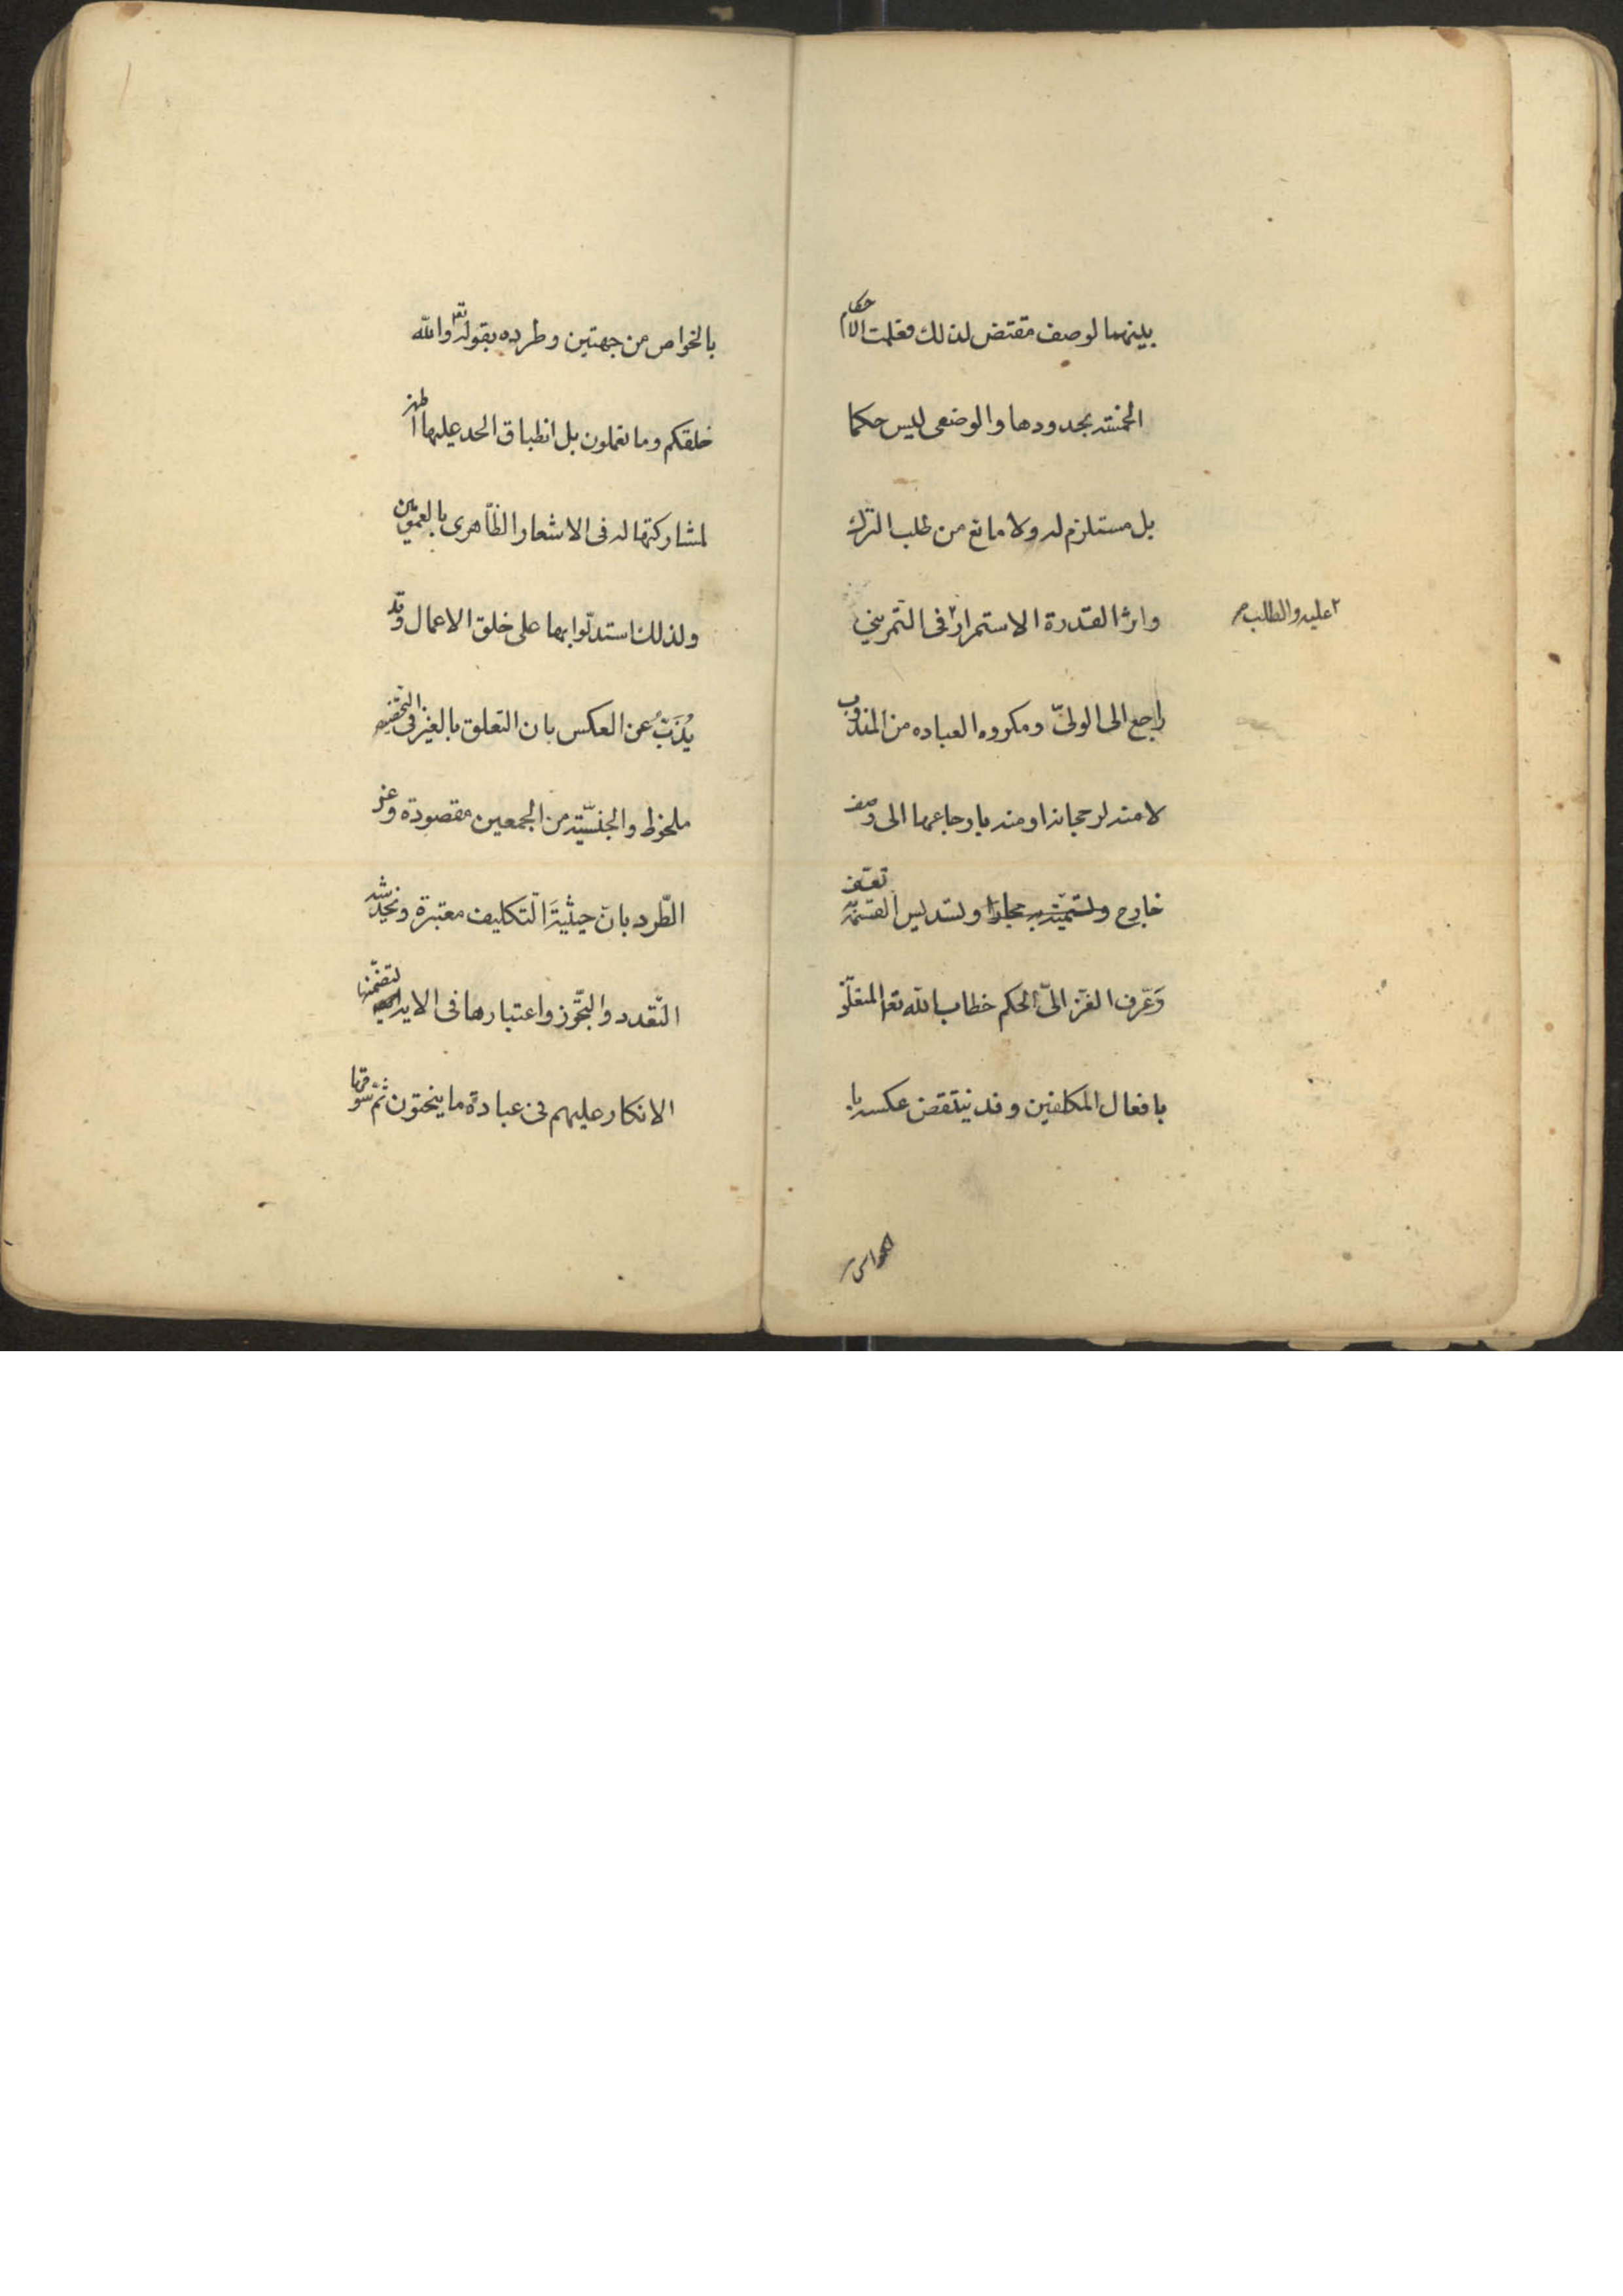 بينهما لوصف مقتض لذلك فعلمت الاحكام
الخمسة بحدودها والوضعى ليس حكما
بل مستلزم له ولا مانع من طلب الترك
واثر القدرة الاستمرار ٢ فى التمرينى
٢ عليه والطلب صح
راجع الى الولىّ ومكروه العباده من المندوب
لا منه لرجحانه او منه بارجاعها الى وصف
خارج وتسميته به مجازا وتسديس القسمة تعسّف
وَعرّف الغزّالىّ الحكم خطاب الله تعا المتعلّق
بافعال المكلفين وقد ينتقض عكسه با
لخواص
بالخواص من جهتين وطرده بقوله تعا والله
خلقكم وما تعملون بل انطباق الحد عليها اظهر
لمشاركتها له فى الاشعار الظّاهرى بالعمومين
ولذلك استدلّوا بها على خلق الاعمال وقد
يُذَبّ عن العكس بان التعلق بالغير فى
ملحوظ والجنسيّة من الجمعين مقصودة وعن
الطّرد بانّ حيثيةَ التكليف معتبرة ويخدشه
التعدد والتجّوز واعتبارها فى الاية لتضمّنها
الانكار عليهم فى عبادة ما ينحتون ثمّ سوقها